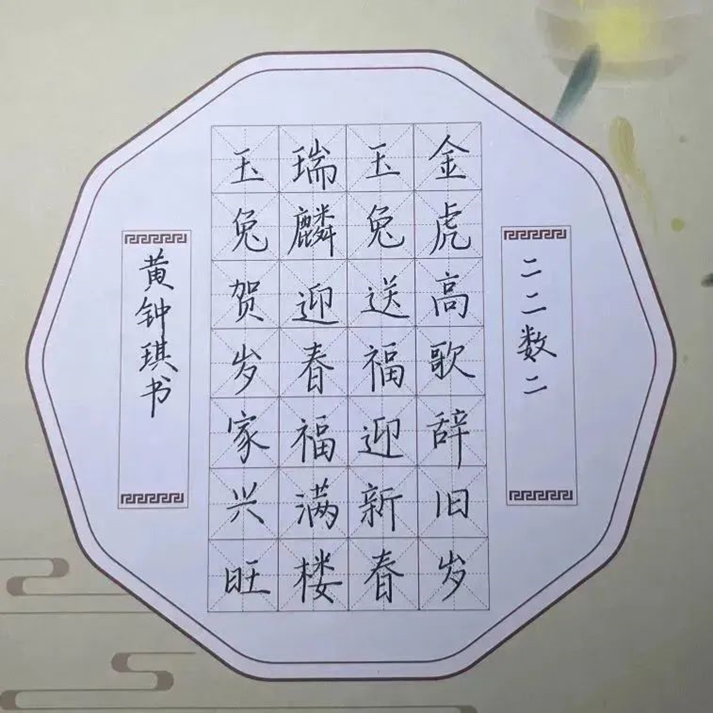 二二数二
金虎高歌辞旧岁
玉兔送福迎新春
瑞麟迎春福满楼
玉兔贺岁家兴旺
黄钟琪书